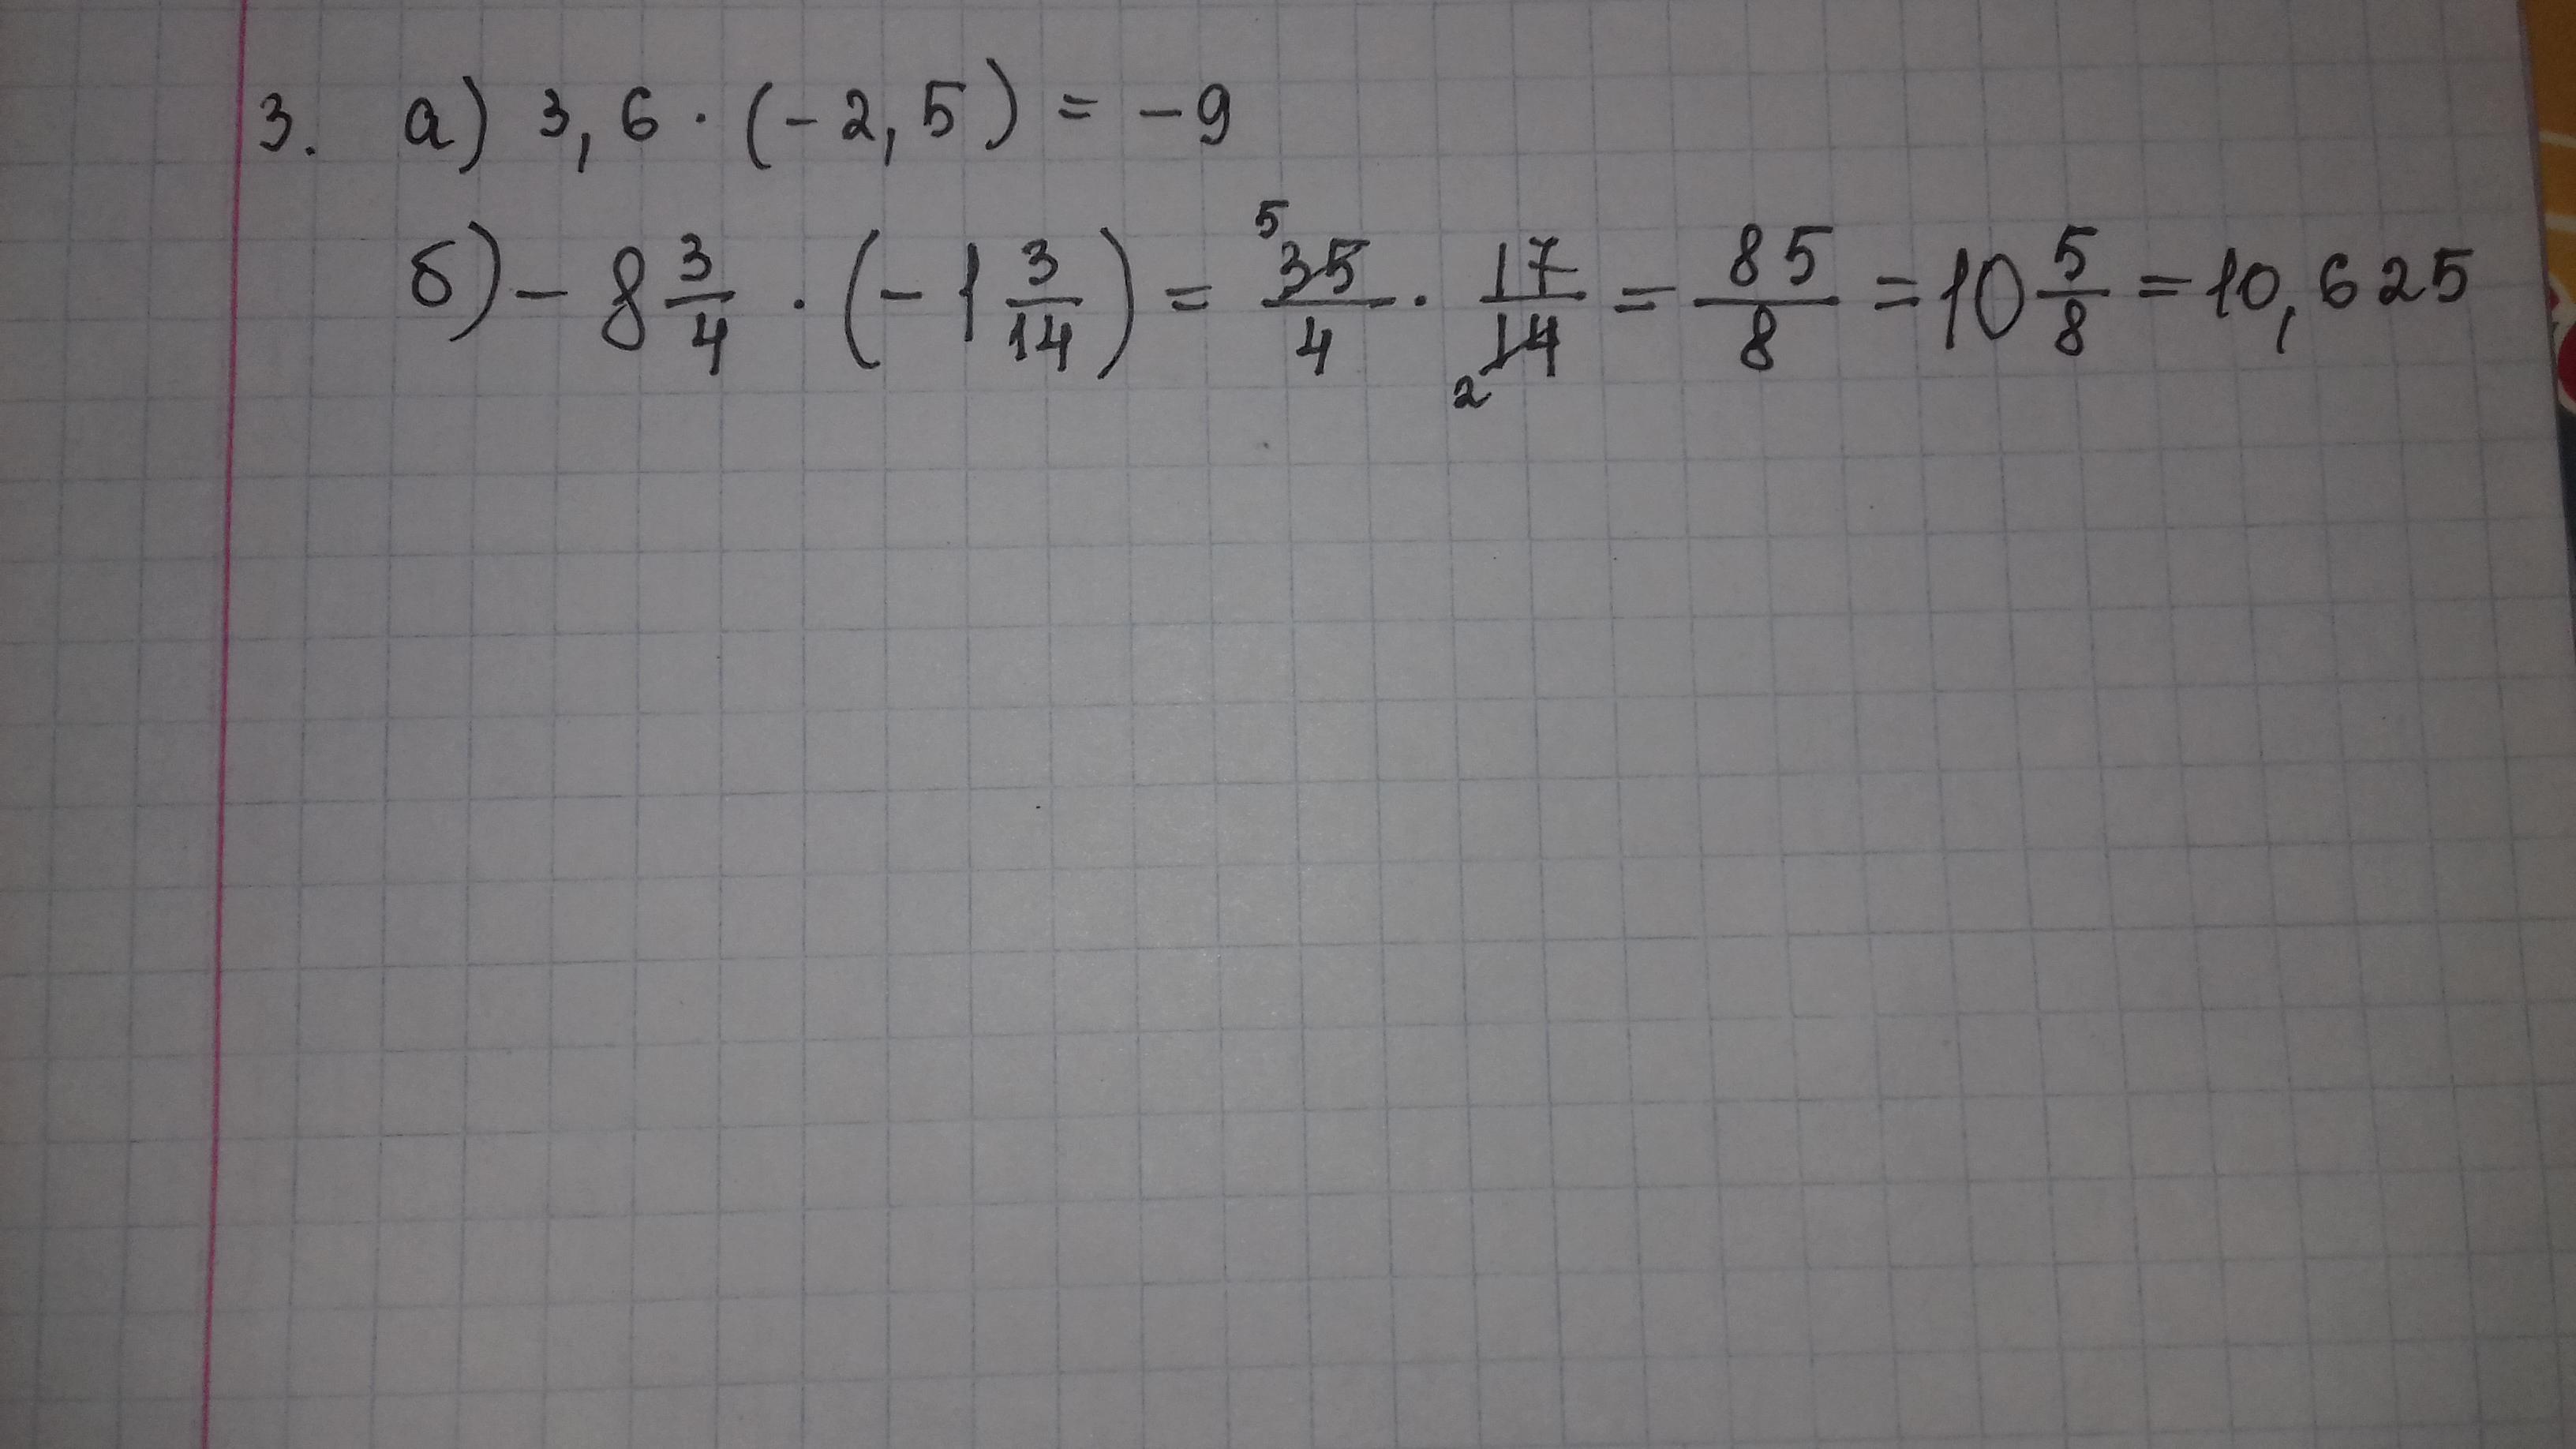 3. а) 3,6 · (-2,5) = -9
б) - 8 3/4 · (-1 3/14) = 5 35/4 · 17/14 2 = 85/8 = 10 5/8 = 10,625